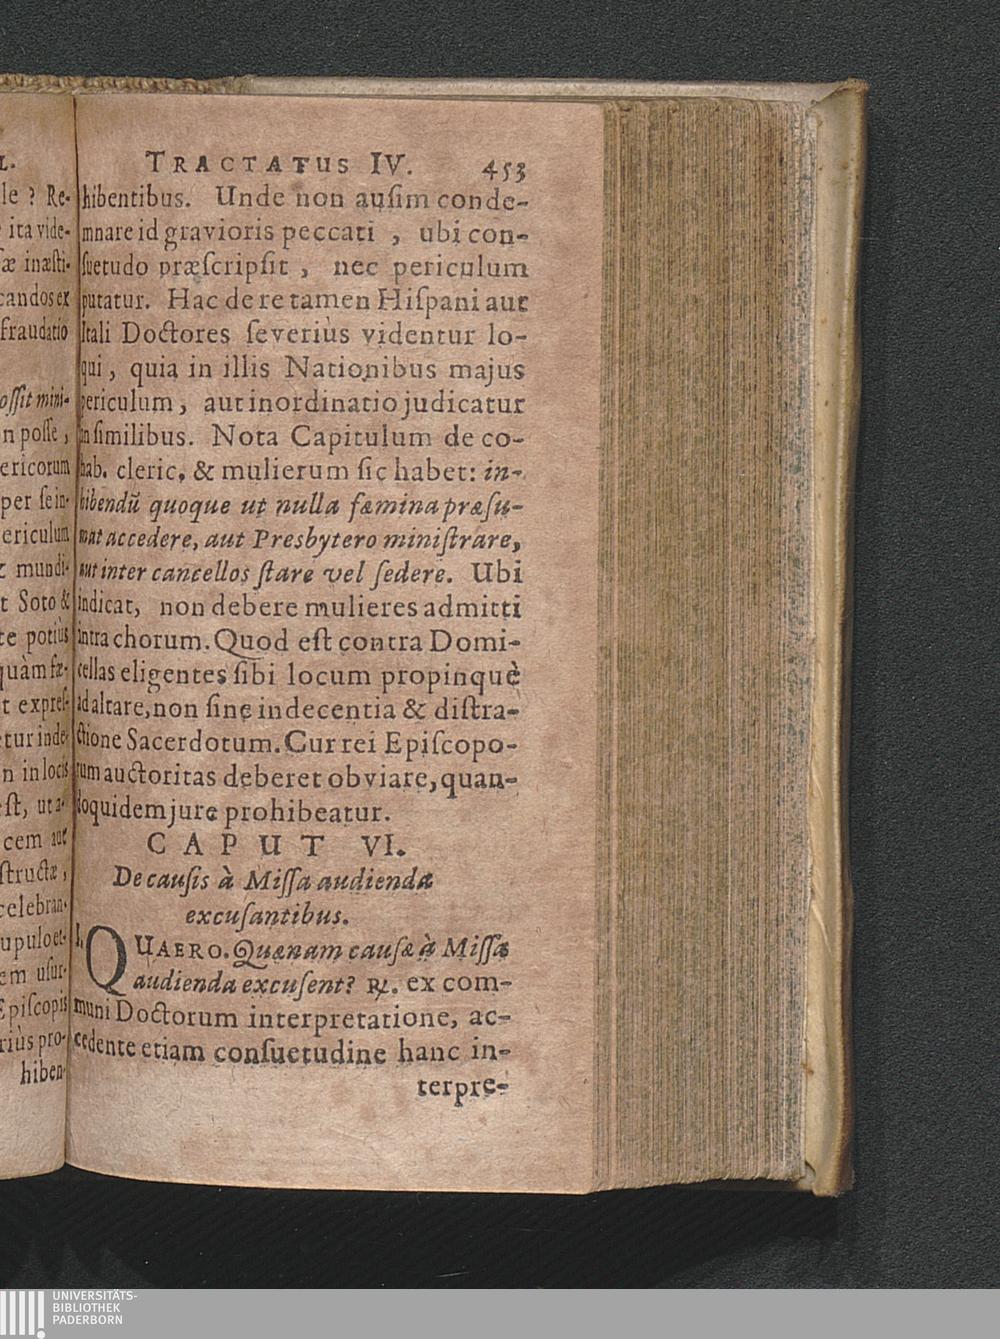 L.
le ? Re-
ita vide-
ſæ inæſti-
candos ex
fraudatio
oſſit mini-
n poſſe ,
ericorum
per ſe in-
ericulum
& mundi-
t Soto &
te potiùs
quàm fæ-
t expreſ-
etur inde-
n in locis
eſt, ut a-
cem aut
ſtructæ ,
celebran-
upulo et-
em uſur-
Epiſcopis
riùs pro-
hiben-
TRACTATUS IV. 453
hibentibus. Unde non auſim conde-
mnare id gravioris peccati , ubi con-
ſuetudo præſcripſit , nec periculum
putatur. Hac de re tamen Hiſpani aut
Itali Doctores ſeveriùs videntur lo-
qui , quia in illis Nationibus majus
periculum , aut inordinatio judicatur
in ſimilibus. Nota Capitulum de co-
hab. cleric. & mulierum ſic habet: in-
hibendū quoque ut nulla fæmina præſu-
mat accedere, aut Presbytero miniſtrare,
aut inter cancellos ſtare vel ſedere. Ubi
indicat, non debere mulieres admitti
intra chorum. Quod eſt contra Domi-
cellas eligentes ſibi locum propinquè
ad altare, non ſine indecentia & diſtra-
ctione Sacerdotum. Cur rei Epiſcopo-
rum auctoritas deberet obviare, quan-
doquidem jure prohibeatur.
CAPUT VI.
De cauſis à Miſſa audienda
excuſantibus.
I. QUAERO. Quænam cauſæ à Miſſa
audienda excuſent? ℞. ex com-
muni Doctorum interpretatione, ac-
cedente etiam conſuetudine hanc in-
terpre-
UNIVERSITÄTS-
BIBLIOTHEK
PADERBORN